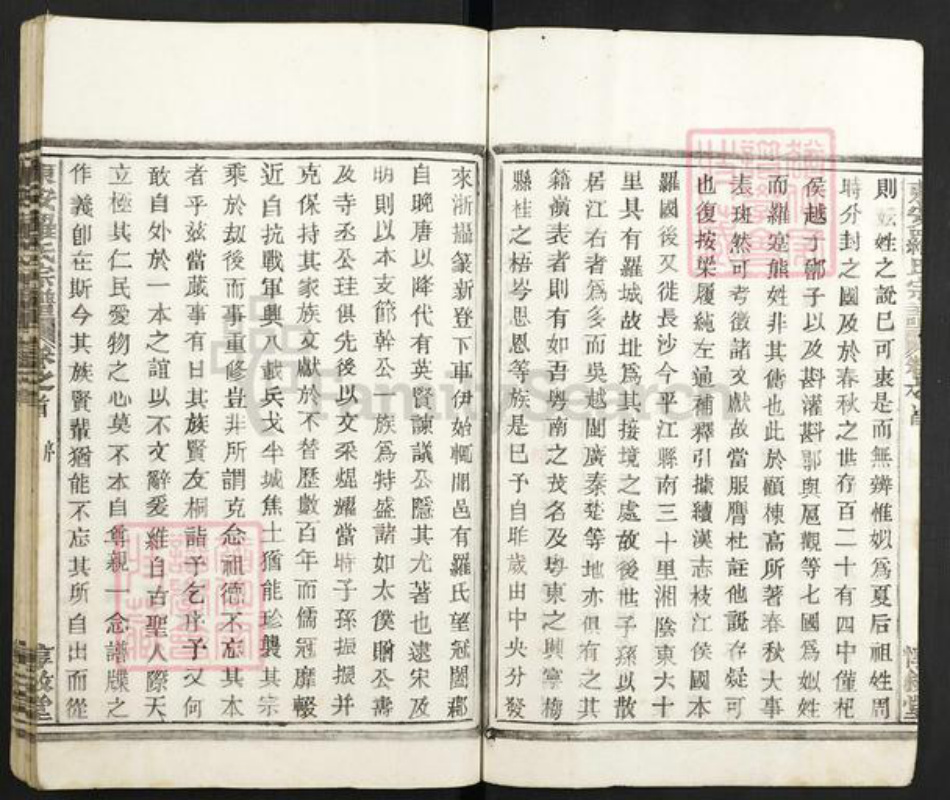 則妘姓之說已可衷是而無辨惟姒爲夏后祖姓周
時分封之國及於春秋之世存百二十有四中僅杞
侯越子鄫子以及斟灌斟鄩與扈觀等七國爲姒姓
而羅寔熊姓非其儔也此於顧棟高所著春秋大事
表班然可考徵諸文獻故當服膺杜註他說存疑可
也復按梁履繩左通補釋引據續漢志枝江侯國本
羅國後又徙長沙今平江縣南三十里湘陰東六十
里具有羅城故址爲其接境之處故後世子孫以散
居江右者爲多而吳越閩廣秦楚等地亦俱有之其
籍嶺表者則有如吾粵南之茂名及粵東之興寧梅
縣桂之梧岑思恩等族是已予自昨歲由中央分發
來浙攝篆新登下車伊始輒聞邑有羅氏望冠闔郡
自晚唐以降代有英賢諫議公隱其尤著也逮宋及
明則以本支節幹公一族爲特盛諸如太僕贈公壽
及寺丞公珪俱先後以文采焜耀當時子孫振振并
克保持其家族文獻於不替歷數百年而儒冠靡輟
近自抗戰軍興八載兵戈半城焦土猶能珍襲其宗
乘於劫後而事重修豈非所謂克念祖德不忘其本
者乎兹當蕆事有日其族賢友桐詣予乞序予又何
敢自外於一本之誼以不文辭爰維自古聖人際天
立極其仁民愛物之心莫不本自尊親一念譜牒之
作義卽在斯今其族賢輩猶能不忘其所自出而從
東安羅氏宗譜 卷之首 序
惇敘堂
FamilySearch